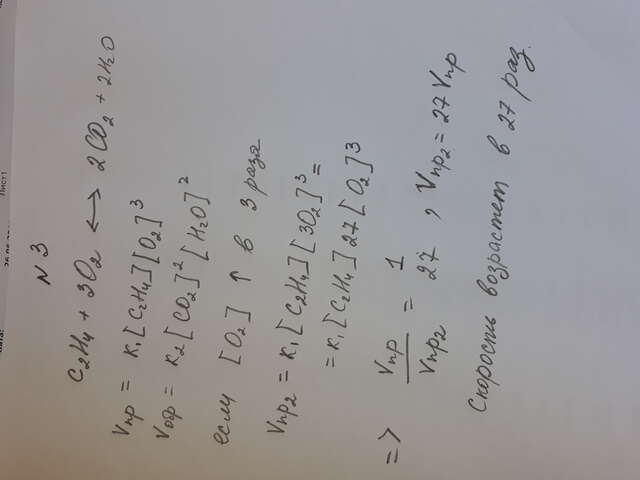 N 3
C₂H₄ + 3O₂ <-> 2CO₂ + 2H₂O
Vпр = K₁[C₂H₄][O₂]³
Vобр = K₂[CO₂]²[H₂O]²
если [O₂] ↑ в 3 раза
Vпр₂ = K₁[C₂H₄][3O₂]³ =
= K₁[C₂H₄]27[O₂]³
=> Vпр/Vпр₂ = 1/27 , Vпр₂ = 27Vпр
Скорость возрастет в 27 раз.
Лист1